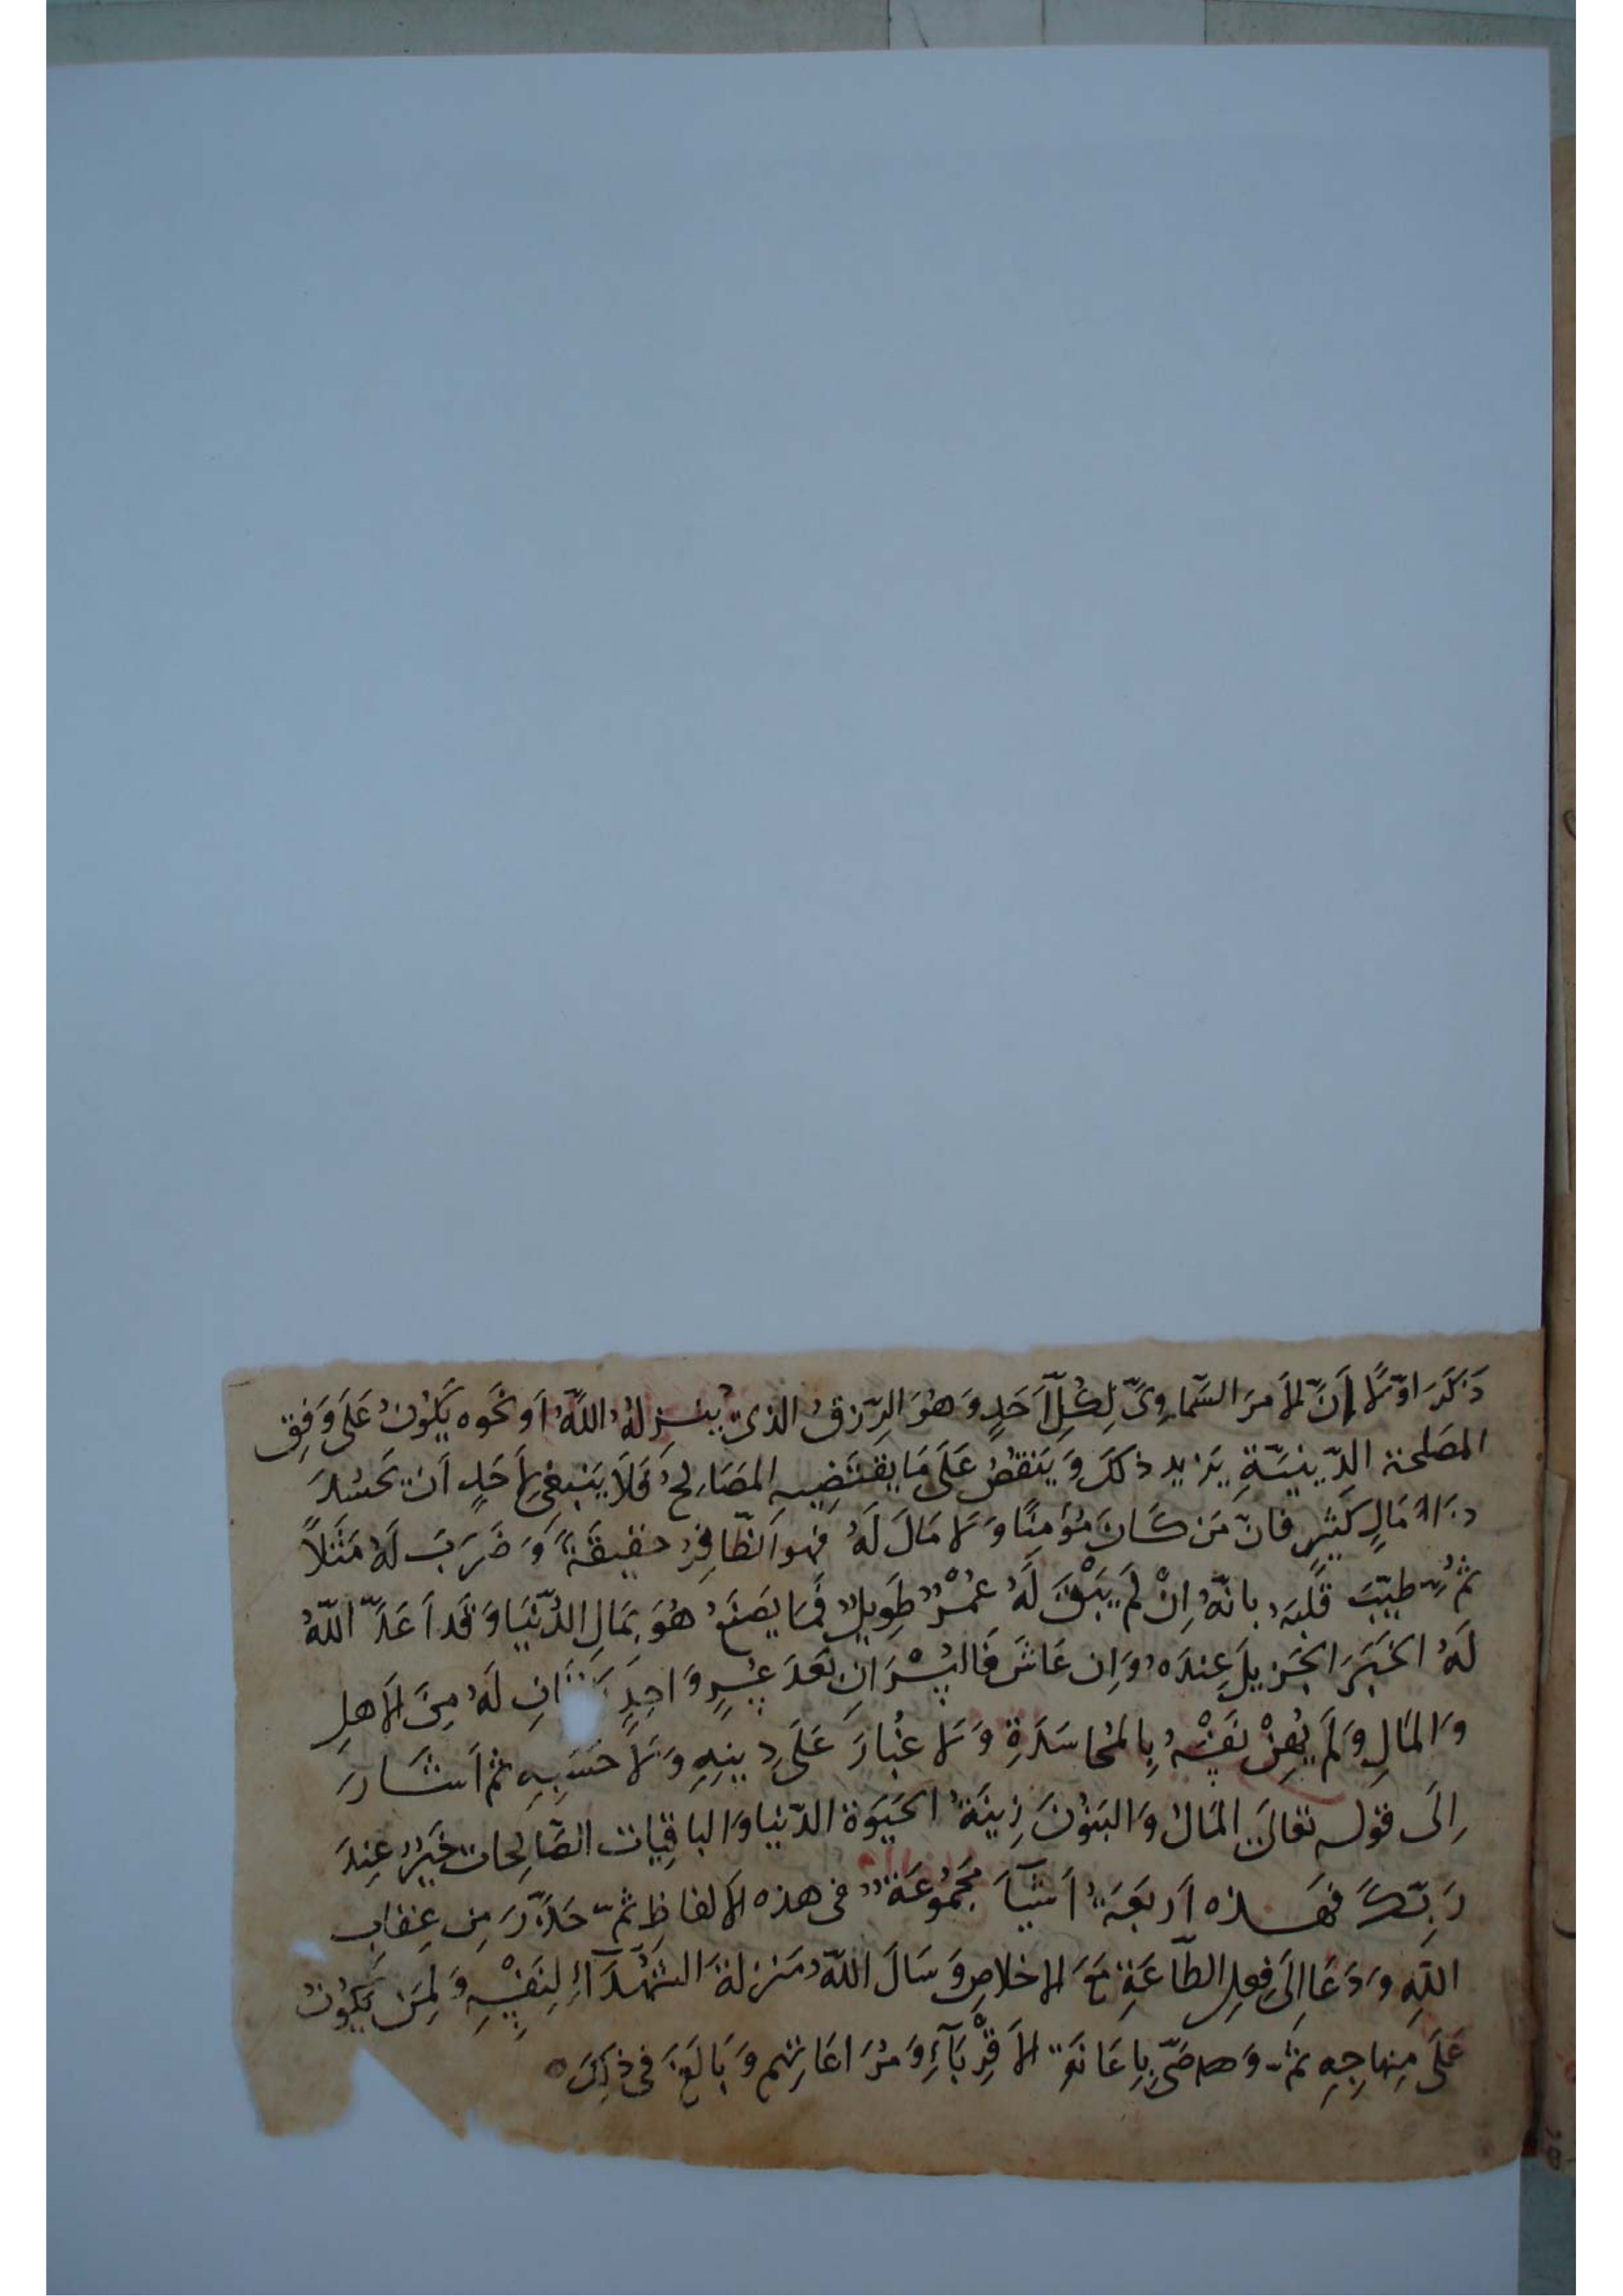 ذَكَرَ اوّلًا إنَّ الأمرَ السّماوِىَّ لِكُلِّ أَحَدٍ وَهُوَ الرِّزقُ الذى يُنزِلُهُ اللَّهُ اَو نَحَوه يَكُونُ عَلَى وَفِق
المصَلحة الدّينيّةِ يَزيد ذلكَ وَيَنقصُ عَلَى مَا يقتَضِيه المصَالِحُ فَلَا يَنبغى لِأحَدٍ اَن يَحسُدَ
مَالٍ كَثيرٍ فانّ مَن كَانَ مُؤمِنًا وَلا مَالَ لَهُ فهو الظّافِرُ حقيقَةً وَضَرَبَ لَهُ مَثَلاً
ثمُّ طيّبَ قَلبَهُ بانّهُ اِنْ لَم يَبْقَ لَهُ عُمْرٌ طَوِيلٌ فَمَا يَصنَعُ هُوَ بِمَالِ الدُّنيَا وَقَد اَعَدّ اللّهُ
لَهُ الخَيرَ الجَزيلَ عِندَه وَاِن عَاشَ فَاليُسْرَانِ بَعدَ عُسرٍ وَاحِدٍ لَهُ مِنَ الاَهلِ
وَالمَالِ وَلَم يُهِنْ نَفسَهُ بِالمحَاسَدَةِ وَلا غُبَارَ عَلَى دِينِهِ وَلَا حَسَبِهِ ثم اَشَارَ
اِلَى قوله تعَالَى المَالُ وَالبَنُونَ زِينَةُ الحَيَوة الدّنيا وَالباقِيَات الصّالِحات خَيرٌ عِندَ
رَبّكَ فهَذه اَربَعَةُ اَشيَآ مَجمُوعَةٌ فى هذه الاَلفاظِ ثمّ حَذّرَ مِن عِقابِ
اللّهِ وَدَعَا اِلَى فِعِل الطّاعَةِ مَعَ الاخلاصِ وَسَالَ اللّهَ مَنزلةَ الشّهَدَآءِ لِنَفسِهِ وَلِمَن يَكُونُ
عَلَى مِنهاجِهِ ثم وَصّى بِاِعَانَةِ الاَقْرِبَآءِ وَمُرَاعَاتِهم وَبَالَغَ فى ذلِكَ